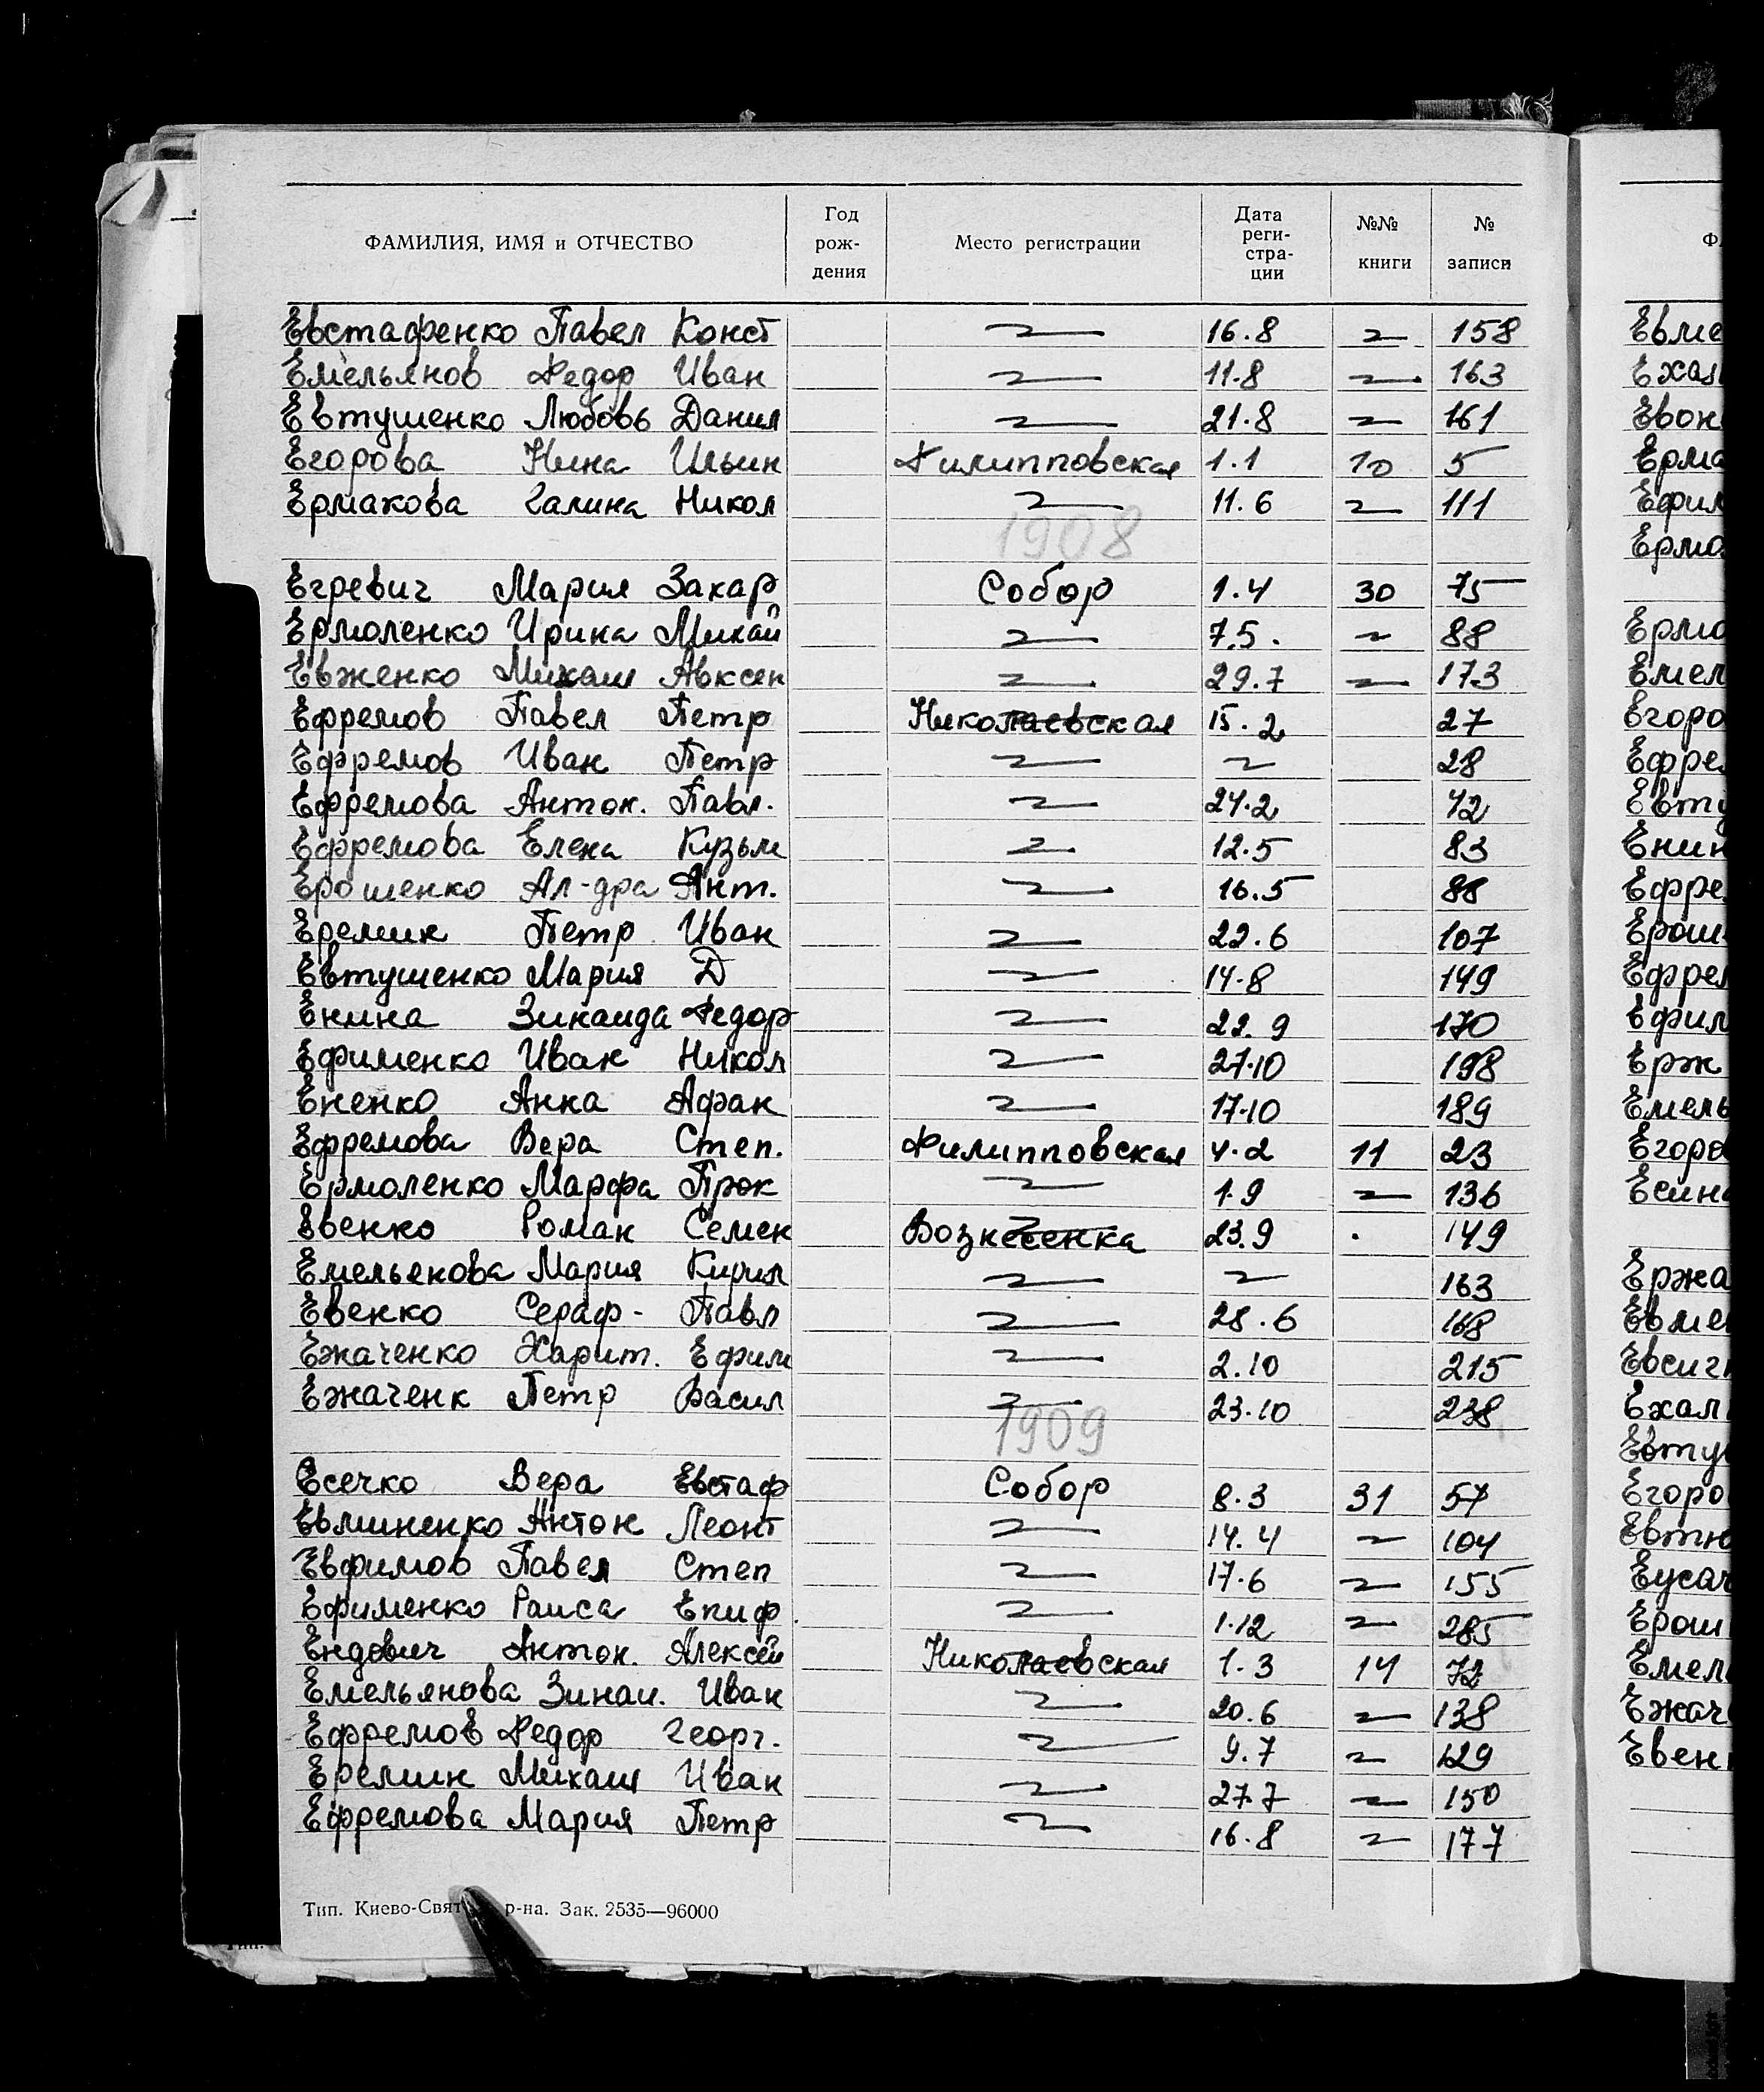 ФАМИЛИЯ, ИМЯ и ОТЧЕСТВО Год рож- дения Место регистрации Дата реги- стра- ции №№ книги № записи
Евстафенко Павел Конст 〃 16.8 〃 158
Емельянов Федор Иван 〃 11.8 〃 163
Евтушенко Любовь Данил 〃 21.8 〃 161
Егорова Нина Ильин Филипповская 1.1 10 5
Ермакова Галина Никол 〃 11.6 〃 111
1908
Егревич Мария Захар Собор 1.4 30 75
Ермоленко Ирина Михай 〃 7.5. 〃 88
Евженко Михаил Авксен 〃 29.7 〃 173
Ефремов Павел Петр Николаевская 15.2 27
Ефремов Иван Петр 〃 〃 28
Ефремова Антон. Павл. 〃 24.2 42
Ефремова Елена Кузьм 〃 12.5 83
Ерошенко Ал-дра Ант. 〃 16.5 88
Еремин Петр Иван 〃 22.6 107
Евтушенко Мария Д 〃 14.8 149
Енина Зинаида Федор 〃 22.9 170
Ефименко Иван Никол 〃 27.10 198
Ененко Анна Афан 〃 17.10 189
Ефремова Вера Степ. Филипповская 4.2 11 23
Ермоленко Марфа Прок 〃 1.9 〃 136
Евенко Роман Семен Вознесенка 23.9 149
Емельенова Мария Кирил 〃 〃 163
Евенко Сераф- Павл 〃 28.6 168
Ежаченко Харит. Ефим 〃 2.10 215
Ежаченк Петр Васил 〃 23.10 238
1909
Есечко Вера Евстаф Собор 8.3 31 57
Евминенко Антон Леонт 〃 14.4 〃 104
Евфимов Павел Степ 〃 17.6 〃 155
Ефименко Раиса Епиф. 〃 1.12 〃 285
Ендович Антон. Алексей Николаевская 1.3 14 72
Емельянова Зинаи. Иван 〃 20.6 〃 138
Ефремов Федор Георг. 〃 9.7 〃 129
Еремин Михаил Иван 〃 27.7 〃 150
Ефремова Мария Петр 〃 16.8 〃 177
Тип. Киево-Свят р-на. Зак. 2535—96000